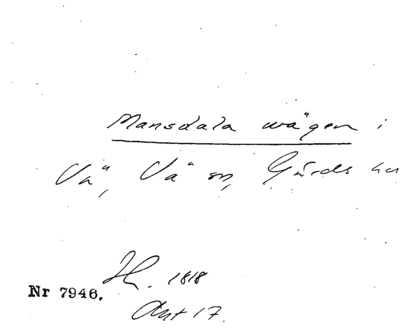 Mansdala wägen i
Vä, Vä sn, Gärds hd
Hr. 1818
Nr 7946.
Akt 17.